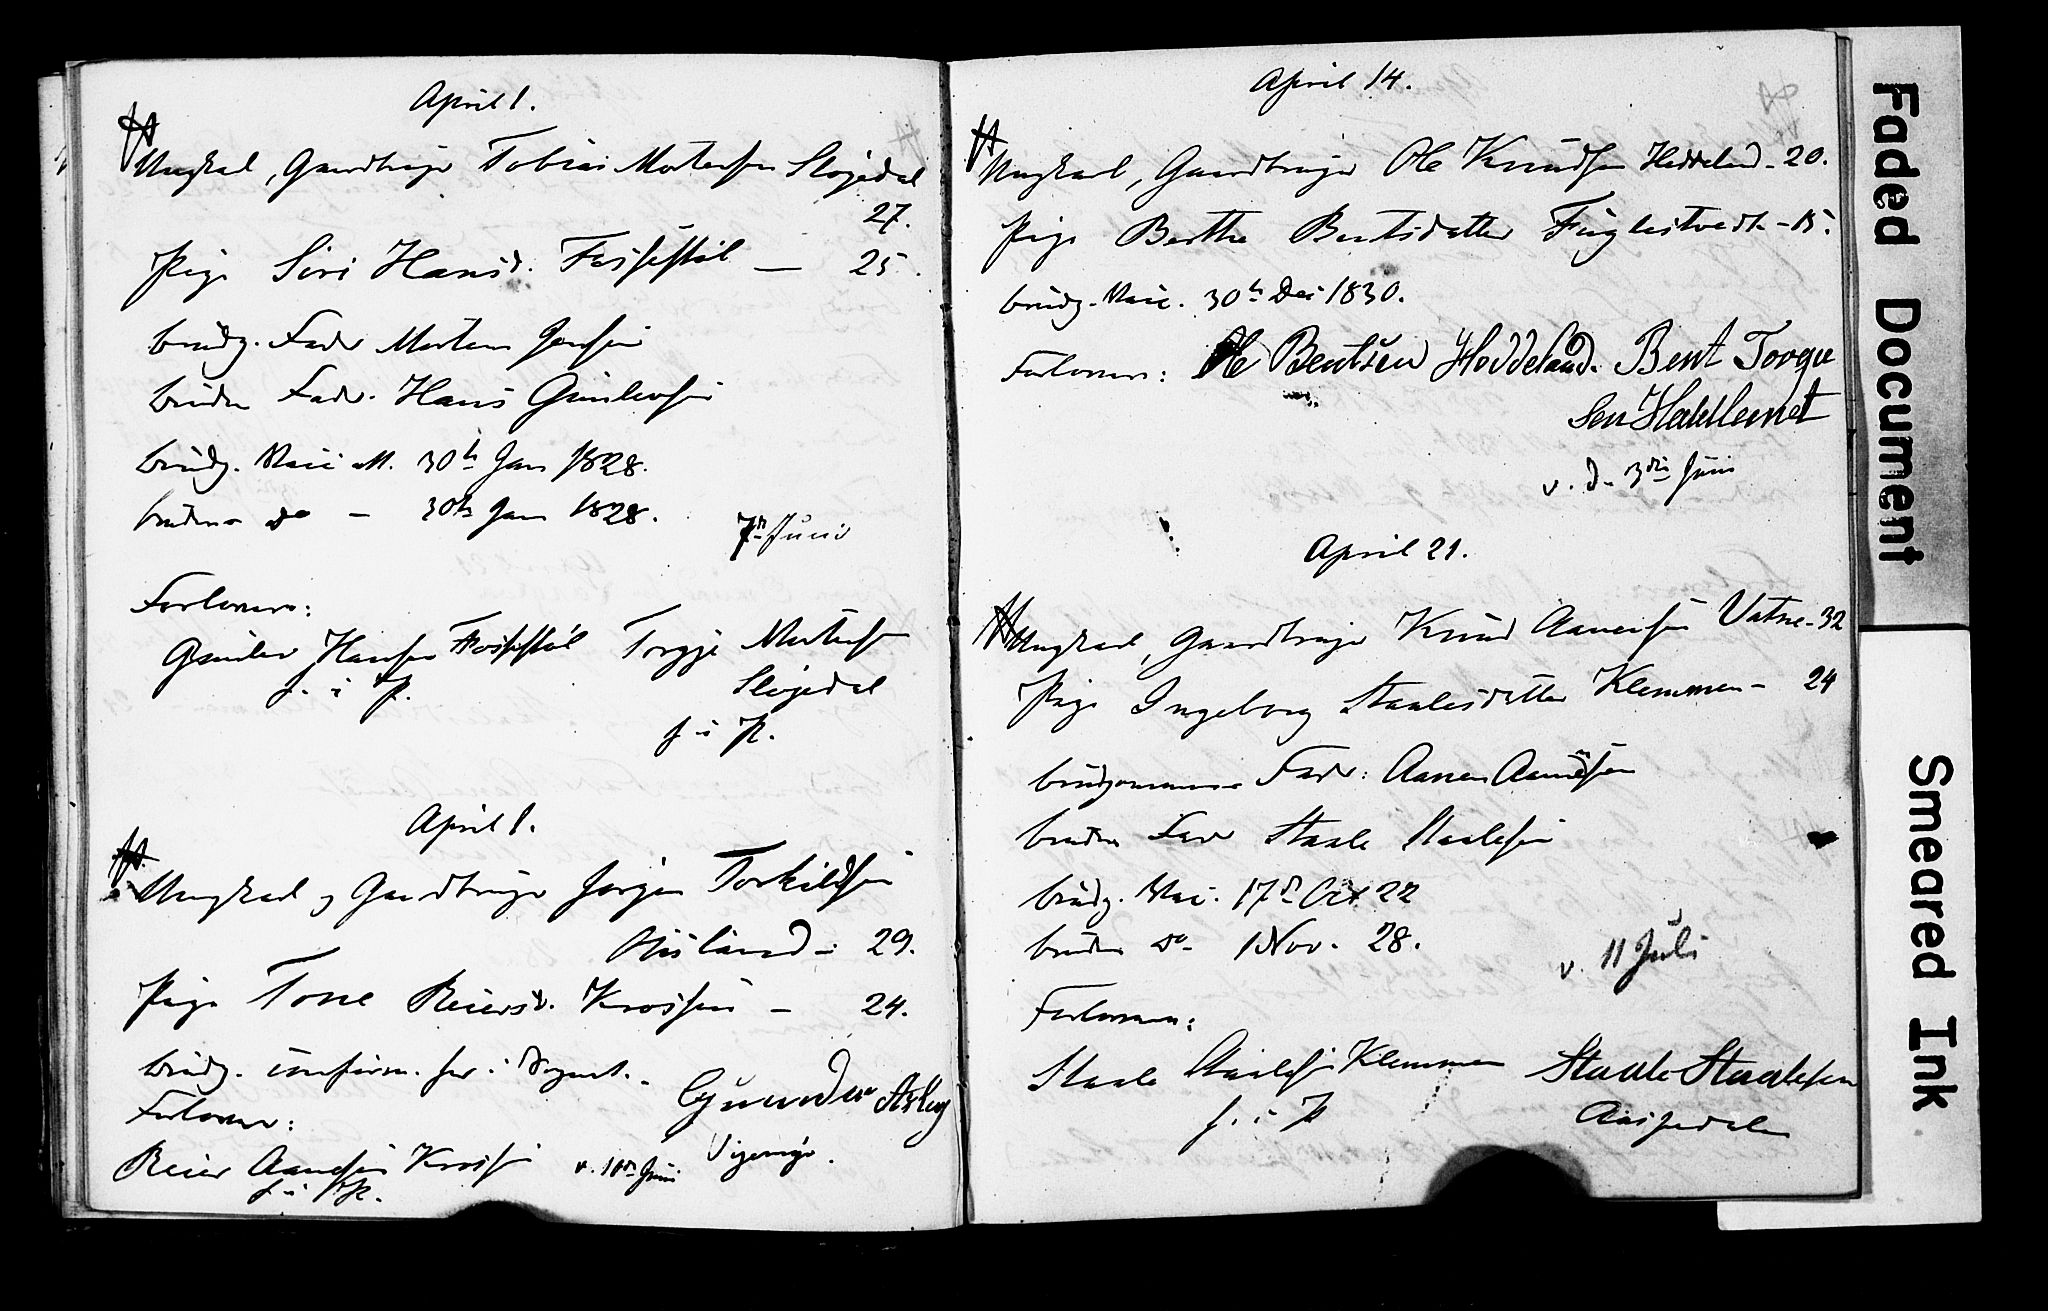 April 1.
Ungkarl, Gaardbruger Tobias Mortensen Sløgedal
27.
Pige Siri Hansd. Fossestøl — 25.
brudg. Fader Morten Jensen
brudens Fader Hans Gunlevsen
brudg. Vacc. att. 30te Jan 1828.
brudens do — 30te Jan 1828.
7de Juni
Forlovere:
Gunlev Hansen Fossestøl Torgje Mortensen
f. i P. Sløgedal
f. i P.
April 1.
Ungkarl og Gaardbruger Jørgen Torkildsen
Hisland - 29.
Pige Tone Reiersd. Krossen - 24.
brudg. confirm. her i Sognet.
Forlovere: Gunder Aslag
Reier Aanesen Krossen v. 10de Juni Vigeniger.
f. i P.
April 14.
Ungkarl, Gaardbruger Ole Knudsen Heddeland - 20.
Pige Berthe Bentsdatter Fuglestvedt - 15.
brudg. Vacc. 30te Dec 1830.
Forlovere: Ole Bentsen Hoddeland. Bent Torgu
sen Heddeland
v. d. 3die Juni
April 21.
Ungkarl, Gaardbruger Knud Aanensen Vatne - 32
Pige Ingeborg Staalesdatter Klemmen - 24
brudgommens Fader: Aanen Aanensen
brudens Fader Staale Staalesen
brudg. Vac. 17de Oct 22
brudens do - 1 Nov. 28.
v. 11 Juli
Forlovere:
Staale Staalesen Klemmen Staale Staalesen
f. i P Aaspedalen
Faded Document
Smeared Ink